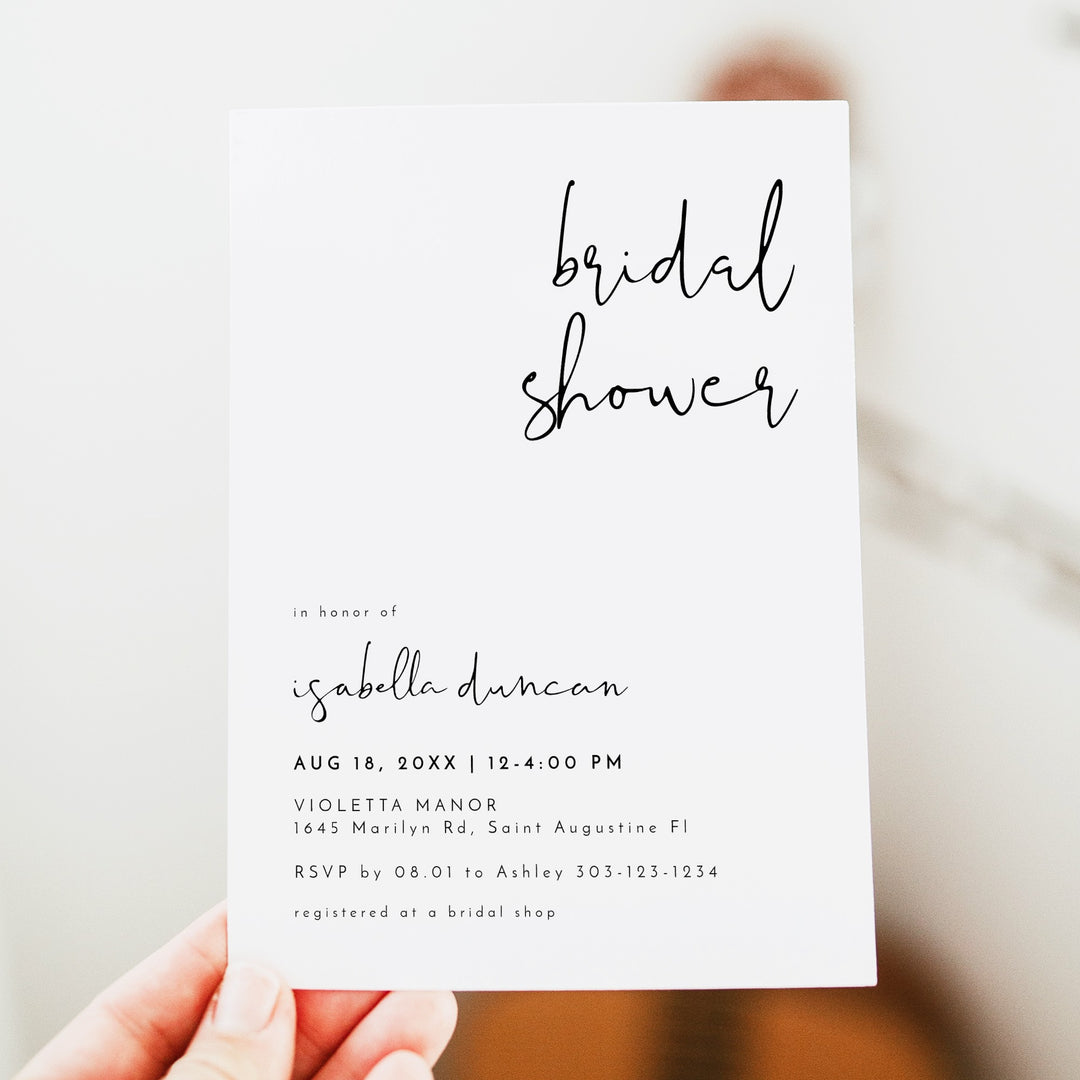 bridal
shower
in honor of
isabella duncan
AUG 18, 20XX | 12-4:00 PM
VIOLETTA MANOR
1645 Marilyn Rd, Saint Augustine Fl
RSVP by 08.01 to Ashley 303-123-1234
registered at a bridal shop